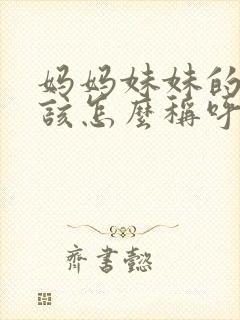 妈妈妹妹的
该怎麽稱呼
齊書懿